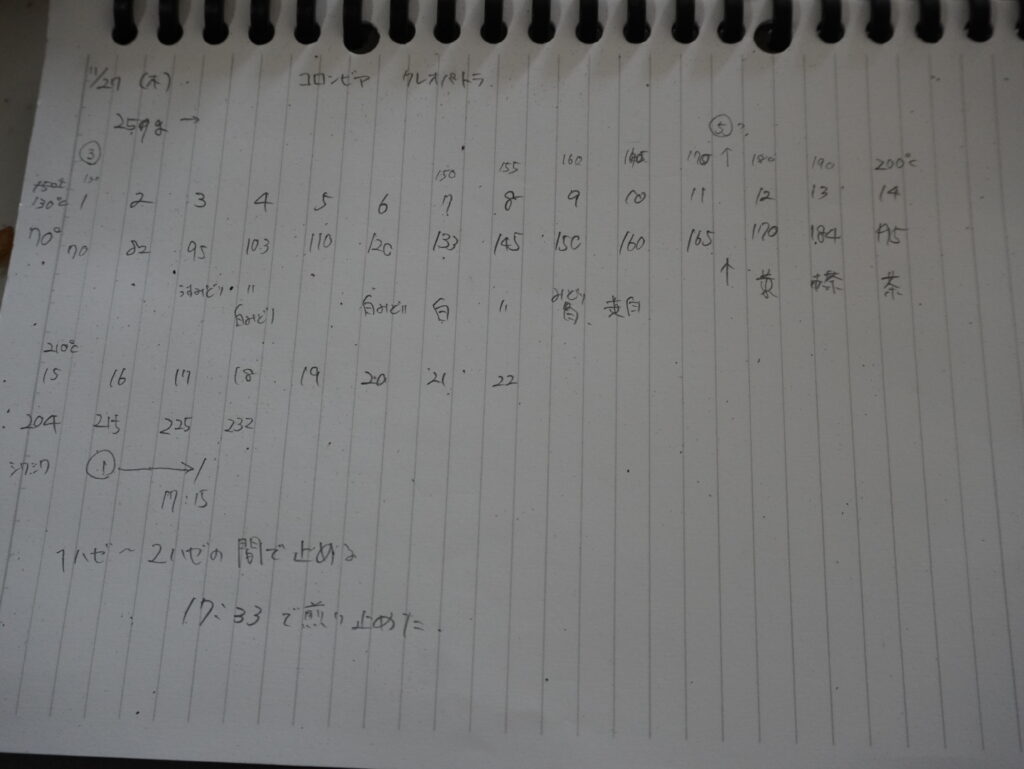 11/27 (木) コロンビア クレオパトラ
259g →
③ ⑤?
150 155 160 165 170 ↑ 180 190 200℃
150℃
130℃ 1 2 3 4 5 6 7 8 9 10 11 12 13 14
70° 70 82 95 103 110 120 133 145 150 160 165 170 184 195
うすみどり 〃 白みどり 白 〃 みどり 黄白 ↑ 黄 茶 茶
白みどり
210℃
15 16 17 18 19 20 21 22
204 215 225 232
シワシワ ① →
17:15
1ハゼ〜2ハゼの間で止める
17:33で煎り止めた